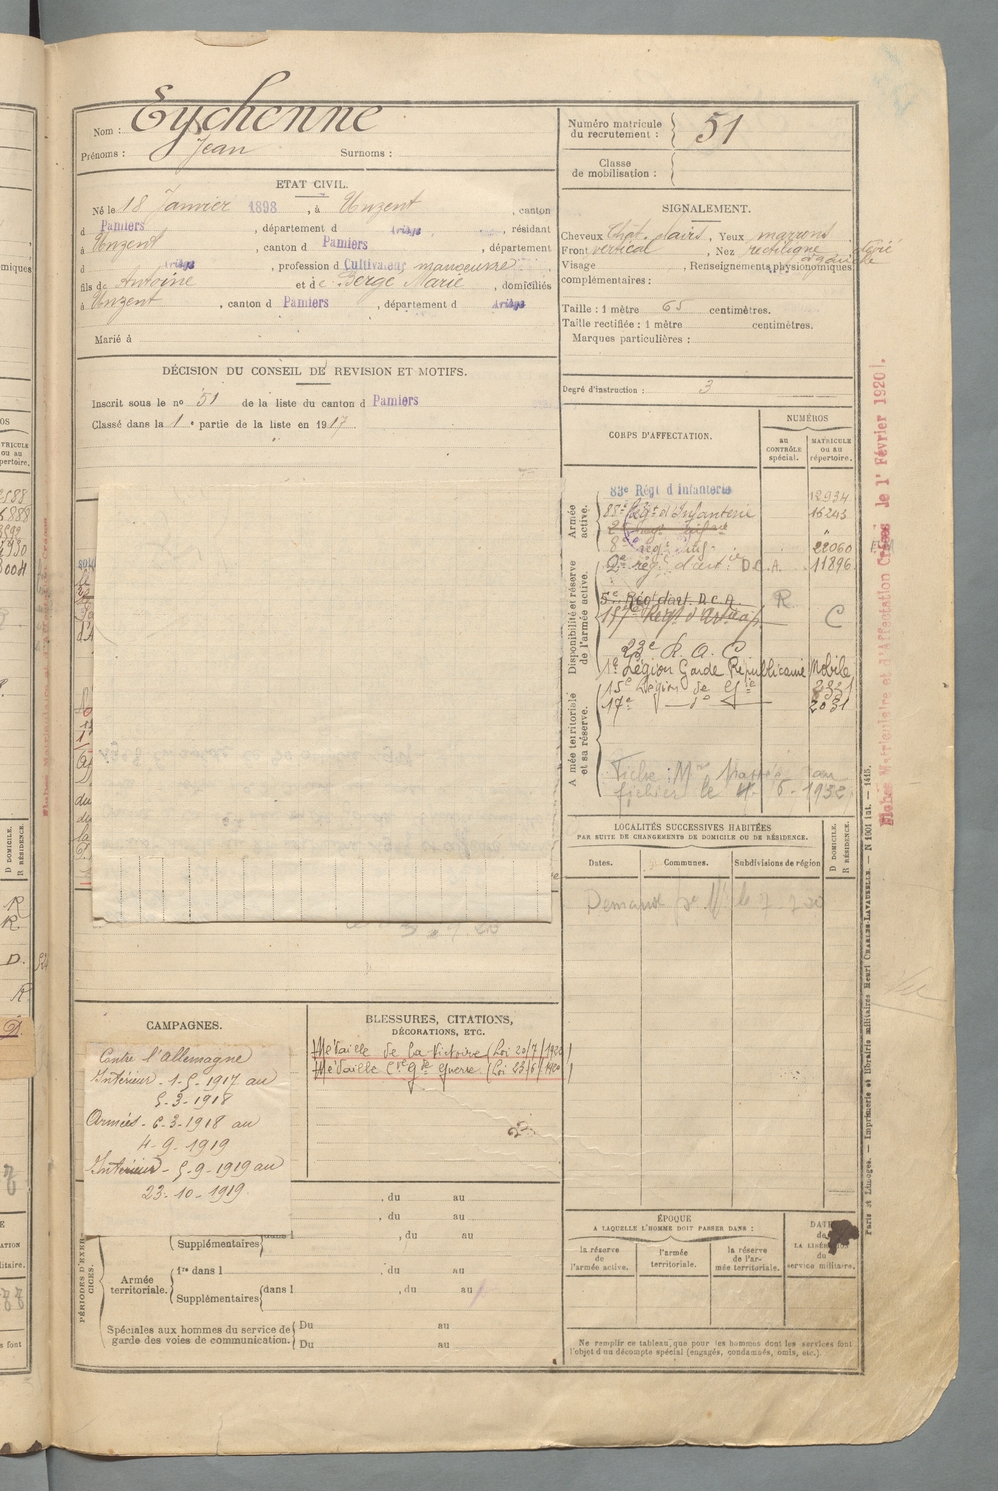 Nom : Eychenne
Prénoms : Jean Surnoms :
Numéro matricule du recrutement : 51
Classe de mobilisation :
ETAT CIVIL.
Né le 18 Janvier 1898, à Unzent, canton
d Pamiers, département d Ariège, résidant
à Unzent, canton d Pamiers, département
d Ariège, profession d Cultivateur manoeuvre
fils de Antoine et de Berge Marie, domiciliés
à Unzent, canton d Pamiers, département d Ariège
Marié à
SIGNALEMENT.
Cheveux Chat. clairs, Yeux marrons
Front vertical, Nez rectiligne
Visage , Renseignements physionomiques
complémentaires :
Taille : 1 mètre 65 centimètres.
Taille rectifiée : 1 mètre centimètres.
Marques particulières :
Degré d'instruction : 3
DÉCISION DU CONSEIL DE REVISION ET MOTIFS.
Inscrit sous le n° 51 de la liste du canton d Pamiers
Classé dans la 1e partie de la liste en 1917
CORPS D'AFFECTATION.
NUMÉROS
au CONTRÔLE spécial.
MATRICULE ou au répertoire.
Armée active.
83e Régt d'Infanterie 12934
88e Régt d'Infanterie 16243
22060
2e rég. d'art. D.C.A. 11896
Disponibilité et réserve de l'armée active.
5e Régt d'art. D.C.A. R
C
23e R. A. C.
1e Légion Garde Républicaine Mobile
Armée territoriale et sa réserve.
15e Légion de Gie 2331
17e — do — 2031
fichier le 4-6-1932
Fiches Matriculaire et d'Affectation Créées le 1r Février 1920.
LOCALITÉS SUCCESSIVES HABITÉES
PAR SUITE DE CHANGEMENTS DE DOMICILE OU DE RÉSIDENCE.
Dates. Communes. Subdivisions de région
D DOMICILE.
R RÉSIDENCE.
CAMPAGNES.
Contre l'allemagne
Intérieur - 1-5-1917 au
5-3-1918
Armées - 6-3-1918 au
4-9-1919
Intérieur - 5-9-1919 au
23-10-1919
BLESSURES, CITATIONS,
DÉCORATIONS, ETC.
Médaille de la Victoire (Loi 20/7/1922)
Médaille Cve Gde Guerre (Loi 23/6/1920)
PÉRIODES D'EXERCICES.
, du au
, du au
Supplémentaires , du au
Armée territoriale.
1re dans l , du au
Supplémentaires dans l , du au
Spéciales aux hommes du service de garde des voies de communication.
Du au
Du au
ÉPOQUE
A LAQUELLE L'HOMME DOIT PASSER DANS :
la réserve de l'armée active.
l'armée territoriale.
la réserve de l'armée territoriale.
DATE de LA LIBÉRATION du service militaire.
Ne remplir ce tableau que pour les hommes dont les services font
l'objet d'un décompte spécial (engagés, condamnés, omis, etc.).
Paris et Limoges. — Imprimerie et librairie militaires Henri CHARLES-LAVAUZELLE. — N 1901 Int. — 1415.